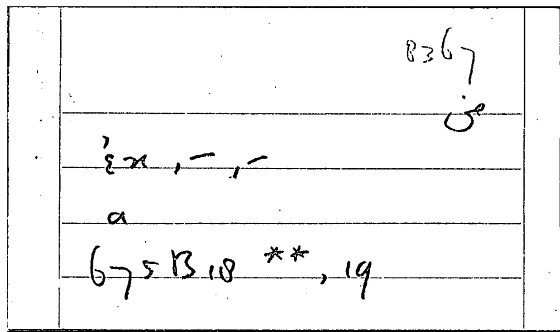 B367
ἐx, –, –
a
675 B 18 **, 19